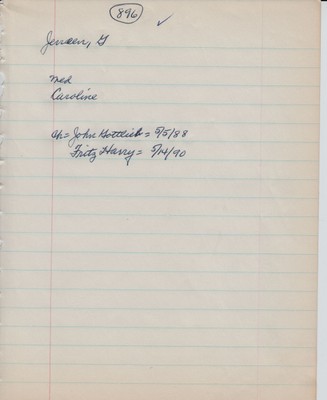 896 ✓
Jensen, G
Med
Caroline
Ch = John Gottlieb = 5/5/88
Fritz Harry = 5/14/90